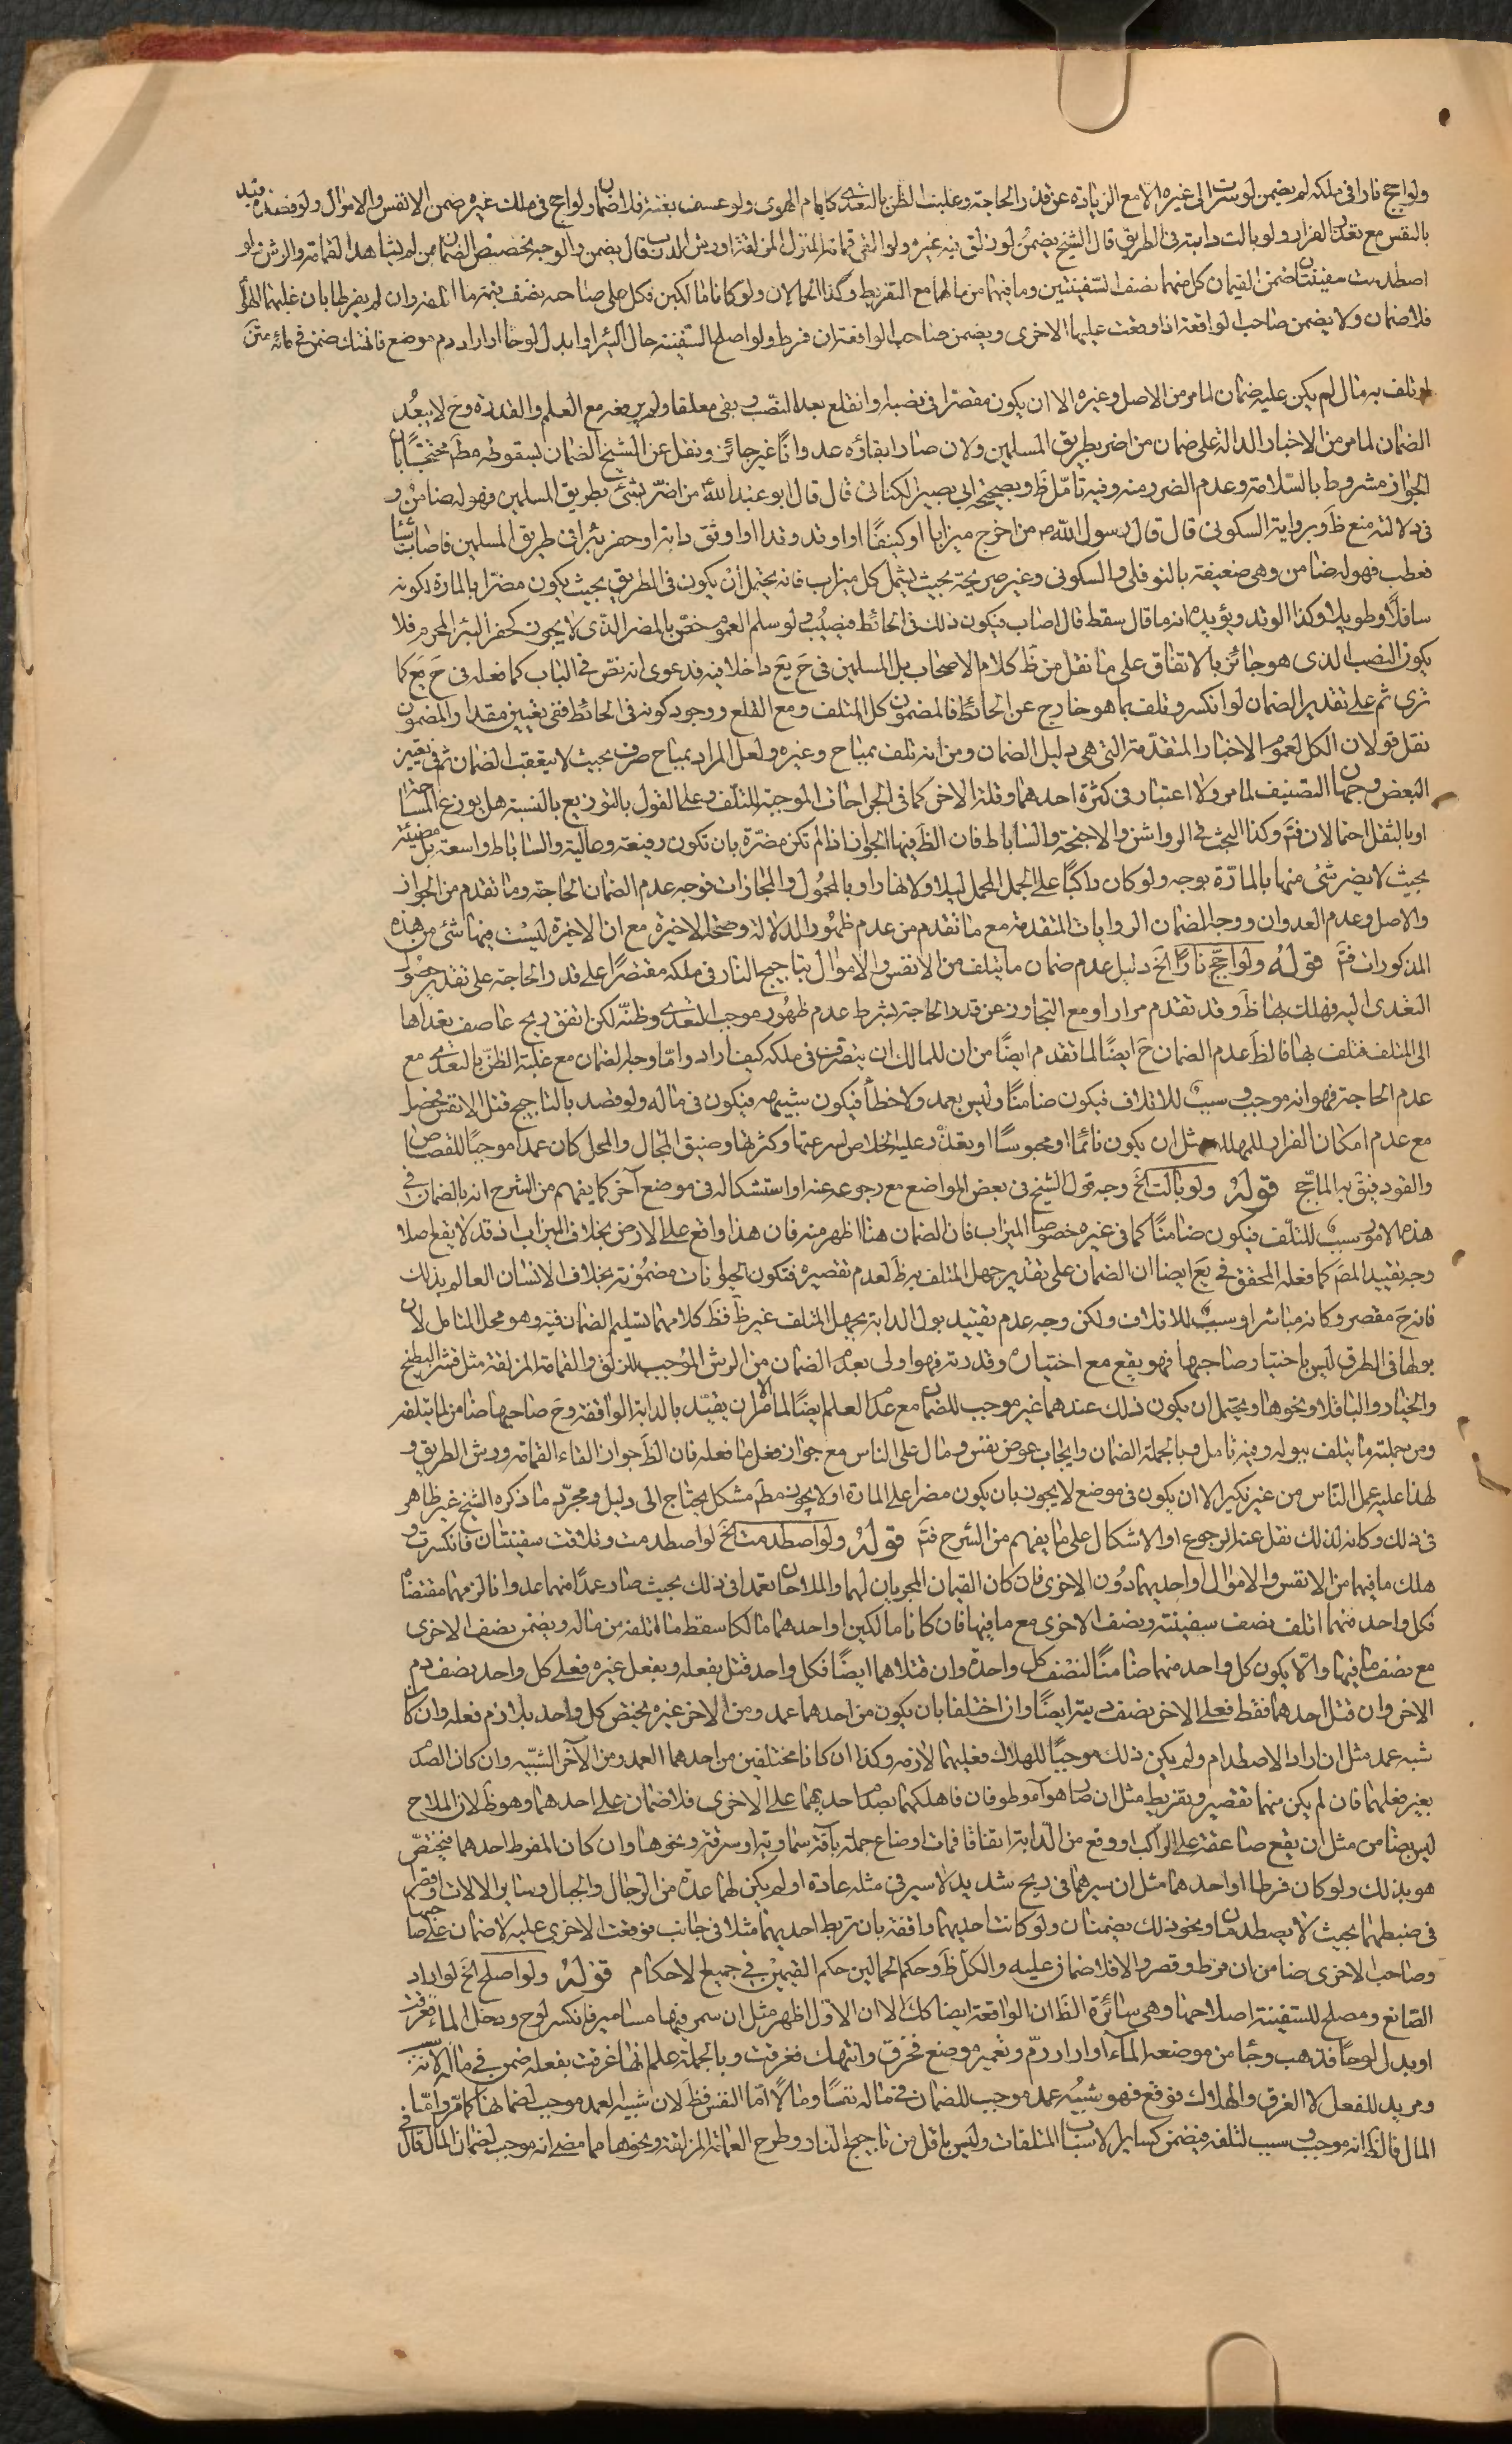 ولو اجج نارا في ملكه لم يضمن لو سرت الى غيره الا مع الزيادة عن قدر الحاجة وغلبت الظن بالتعدي كايام الهوى ولو عسف بغتة فلا ضمان ولو اجج في ملك غيره ضمن الانفس والاموال ولو قصد قيد
بالنفس مع تعذر الفرار ولو بالت دابته في الطريق قال الشيخ يضمن لو زلق فيه غيره ولو القى قمامة المنزل المزلقة او رش الدرب قال يضمن والوجه تخصيص الضمان بمن لم يشاهد القمامة والرش ولو
اصطدمت سفينتان ضمن القيمان كل منهما نصف السفينتين وما فيهما من مالهما مع التفريط وكذا الحمالان ولو كانا مالكين فكل على صاحبه نصف قيمة ما اتلفه وان لم يفرطا بان غلبهما الهواء
فلا ضمان ولا يضمن صاحب الواقفة اذا وقعت عليها الاخرى ويضمن صاحب الواقعة ان فرط ولو اصلح السفينة حال السير او ابدل لوحا او اراد رم موضع فانهتك ضمن في ماله
تلف به مال لم يكن عليه ضمان لما مر من الاصل وغيره الا ان يكون مقصرا في نصبه او انقلع بعد النصب وبقي معلقا ولم يرفعه مع العلم والقدرة وح لا يبعد
الضمان لما مر من الاخبار الدالة على ضمان من اضر بطريق المسلمين ولان صار ابقاؤه عدوانا غير جائز ونقل عن الشيخ الضمان لسقوطه مط محتجا بان
الجواز مشروط بالسلامة وعدم الضرر منه وفيه تامل ظ وبصحيحة ابي بصير الكناني قال قال ابو عبد الله من اضر بشئ بطريق المسلمين فهو له ضامن و
في دلالته منع ظ وبرواية السكوني قال قال رسول الله ص من اخرج ميزابا او كنيفا او اوتد وتدا او اوثق دابة او حفر بئرا في طريق المسلمين فاصاب شيئا
فعطب فهو له ضامن وهي ضعيفة بالنوفلي والسكوني وغير صريحة بحيث يشمل كل ميزاب فانه يحتمل ان يكون في الطريق بحيث يكون مضرا بالمارة لكونه
سافلا وطويلا وكذا الوتد ويؤيده انه ما قال سقط قال اصاب فيكون ذلك في الحائط فيصيب ولو سلم العموم خص بالمضر الذي لا يجوز كحفر البئر المحرم فلا
يكون النصب الذي هو جائز بالاتفاق على ما نقل من ظ كلام الاصحاب بل المسلمين في ح يع داخلا فيه فدعوى انه نص في الباب كما فعله في ح يع كما
ترى ثم على تقدير الضمان لو انكسر وتلف بما هو خارج عن الحائط فالمضمون كل المتلف ومع القلع ووجود كونه في الحائط ففي تعيين مقدار المضمون
نقل قولان الكل لعموم الاخبار المتقدمة التي هي دليل الضمان ومن انه تلف بمباح وغيره ولعل المراد بمباح صرف بحيث لا يتعقب الضمان ثم في تعيين
البعض وجهان التنصيف لما مر ولا اعتبار في كثرة احدهما وقلة الاخر كما في الجراحات الموجبة للتلف وعلى القول بالتوزيع بالنسبة هل يوزع المساحة
او بالثقل احتمالان فتم وكذا البحث في الرواشن والاجنحة والساباط فان الظ فيها الجواز اذا لم تكن مضرة بان تكون رفيعة وعالية والساباط واسعة بل مضيئة
بحيث لا يضر شئ منها بالمارة بوجه ولو كان راكبا على الجمل المحمل ليلا ولا نهارا وبالحمول والمجازات فوجه عدم الضمان الحاجة وما تقدم من الجواز
والاصل وعدم العدوان ووجه الضمان الروايات المتقدمة مع ما تقدم من عدم ظهور الدلالة وصحة الاخيرة مع ان الاخيرة ليست فيها شئ من هذه
المذكورات فتم قوله ولو اجج نارا الخ دليل عدم ضمان ما يتلف من الانفس والاموال بتاجيج النار في ملكه مقتصرا على قدر الحاجة على تقدير حصول
التعدى اليه فهلك بها ظ وقد تقدم مرارا ومع التجاوز عن قدر الحاجة بشرط عدم ظهور موجب التعدى وظنه لكن اتفق ريح عاصف بعداها
الى المتلف فتلف بها فالظ عدم الضمان ح ايضا لما تقدم ايضا من ان للمالك ان يتصرف في ملكه كيف اراد واما وجه الضمان مع غلبة الظن بالتعدى مع
عدم الحاجة فهو انه موجب وسبب للاتلاف فيكون ضامنا وليس بعمد ولا خطأ فيكون شبيهه فيكون في ماله ولو قصد بالتاجيج قتل الانفس فحصل
مع عدم امكان الفرار للمهلك مثل ان يكون نائما او محبوسا او تعذر عليه الخلاص لسرعتها وكثرتها وضيق المجال والمحل كان عمدا موجبا للقصاص
والقود فيق به المؤجج قوله ولو بالت الخ وجه قول الشيخ في بعض المواضع مع رجوعه عنه او استشكاله في موضع آخر كما يفهم من الشرح انه بالضمان في
هذه الامور سبب للتلف فيكون ضامنا كما في غيره خصوصا الميزاب فان الضمان هنا اظهر منه فان هذا واقع على الارض بخلاف الميزاب اذ قد لا يقع اصلا
وجه تقييد المص كما فعله المحقق في يع ايضا ان الضمان على تقدير جهل المتلف به ظ لعدم تقصيره فتكون الحيوانات مضمونة بخلاف الانسان العالم بذلك
فانه ح مقصر وكانه مباشر او سبب للاتلاف ولكن وجه عدم تقييد بول الدابة بجهل المتلف غير ظ فظ كلامهما تسليم الضمان فيه وهو محل التامل لان
بولها في الطرق ليس باختيار صاحبها فهو يقع مع اختياره وقدرته فهو اولى بعدم الضمان من الرش الموجب للزلق والقمامة المزلقة مثل قشر البطيخ
والخيار والباقلا ونحوها ويحتمل ان يكون ذلك عندهما غير موجب للضمان مع عدم العلم ايضا لما مر الا ان يقيد بالدابة الواقفة وح صاحبها ضامن لما يتلفه
ومن جملته ما يتلف ببوله وفيه تامل وبالجملة الضمان وايجاب عوض نفس ومال على الناس مع جواز فعل ما فعله فان الظ جواز القاء القمامة ورش الطريق و
لهذا عليه عمل الناس من غير نكير الا ان يكون في موضع لا يجوز بان يكون مضرا على المارة او لا يجوز مط مشكل يحتاج الى دليل ومجرد ما ذكره الشيخ غير ظاهر
في ذلك وكانه لذلك نقل عنه الرجوع او الاشكال على ما يفهم من الشرح فتم قوله ولو اصطدمت الخ لو اصطدمت وتلاقت سفينتان فانكسرت و
هلك ما فيهما من الانفس والاموال او احديهما دون الاخرى فان كان القيمان المجريان لهما والملاحان تعمدا في ذلك بحيث صار عمدا منهما عدوانا لزمهما مقتضاه
فكل واحد منهما اتلف نصف سفينته ونصف الاخرى مع ما فيها فان كانا مالكين او احدهما مالكا سقط ما اتلفه من ماله ويضمن نصف الاخرى
مع نصف ما فيها والا يكون كل واحد منهما ضامنا لنصف كل واحدة وان قتلاهما ايضا فكل واحد قتل بفعله وبفعل غيره فعلى كل واحد نصف دم
الاخر وان قتل احدهما فقط فعلى الاخر نصف ديته ايضا وان اختلفا بان يكون من احدهما عمد ومن الاخر غيره يختص كل واحد بلازم فعله وان كان
شبه عمد مثل ان اراد الاصطدام ولم يكن ذلك موجبا للهلاك فعليهما لازمه وكذا ان كانا مختلفين من احدهما العمد ومن الآخر الشبيه وان كان الصدم
بغير فعلهما فان لم يكن منهما تقصير وتفريط مثل ان صار هواء وطوفان فاهلكهما بصدم احديهما على الاخرى فلا ضمان على احدهما وهو ظ لان الملاح
ليس بضامن مثل ان يقع صاعقة على الراكب او وقع من الدابة اتفاقا فمات او ضاع حمله بآفة سماوية او سرقة ونحوها وان كان المفرط احدهما فيختص
هو بذلك ولو كان فرطا او احدهما مثل ان سيرهما في ريح شديد لا سير في مثله عادة او لم يكن لهما عدة من الرجال والحبال وساير الالات او قصرا
في ضبطهما بحيث لا يصطدمان ونحو ذلك يضمنان ولو كانت احديهما واقفة بان تربط احديهما مثلا في جانب فوقعت الاخرى عليه لا ضمان على صاحبها
وصاحب الاخرى ضامن ان فرط وقصر والا فلا ضمان عليه والكل ظ وحكم الحمالين حكم القيمين في جميع الاحكام قوله ولو اصلح الخ لو اراد
الصانع ومصلح للسفينة اصلاحها وهي سائرة الظ ان الواقفة ايضا كك الا ان الاول اظهر مثل ان سمر فيها مسامير فانكسر لوح ودخل الماء فغرقت
او بدل لوحا فذهب وجا من موضعه الماء او اراد رم وتعمير موضع فخرق وانتهك فغرقت وبالجملة علم انها غرقت بفعله ضمن في ماله لانه
ومريد للفعل لا الغرق والهلاك فوقع فهو شبيه عمد موجب للضمان في ماله نفسا ومالا اما النفس فظ لان شبيه العمد موجب لضمانها كما مر واما
المال فالظ انه موجب وسبب لتلفه فيضمن كساير الاسباب المتلفات وليس باقل من تاجيج النار وطرح القمامة المزلقة ونحوها مما مضى انه موجب لضمان المال قال في